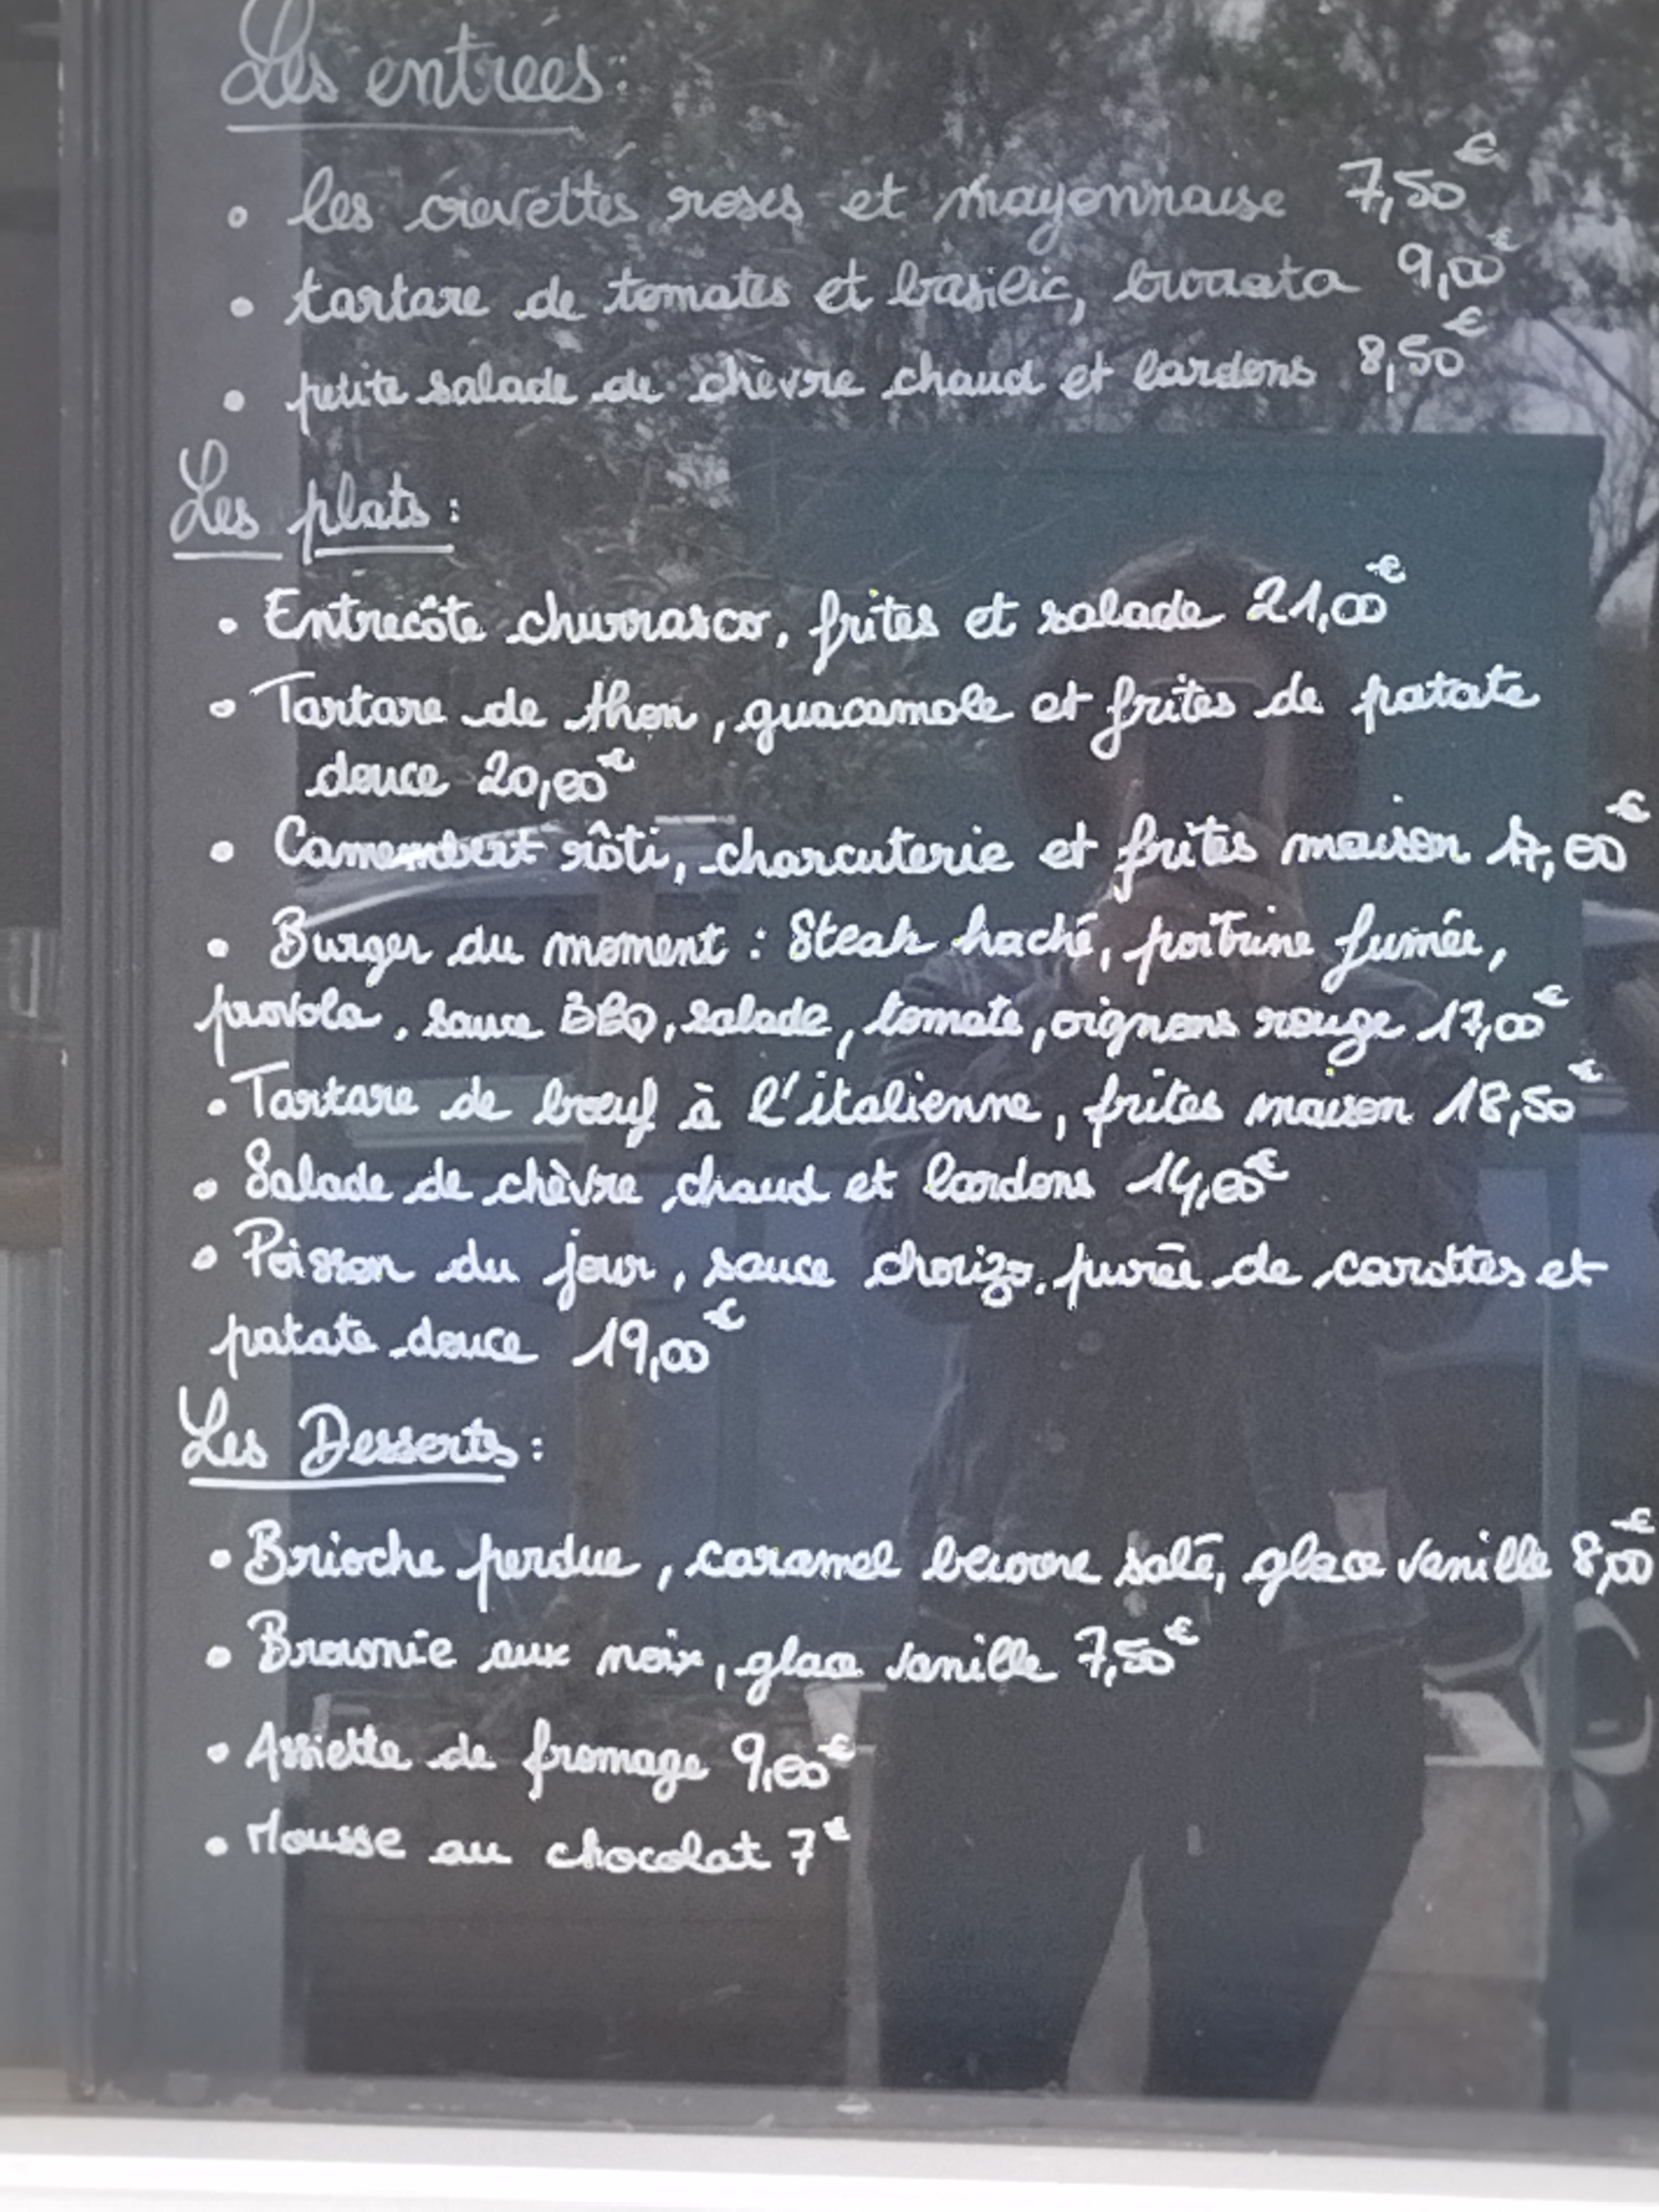 Les entrees:
• les crevettes roses et mayonnaise 7,50€
• tartare de tomates et basilic, burrata 9,00€
• petite salade de chèvre chaud et lardons 8,50€
Les plats:
• Entrecôte churrasco, frites et salade 21,00€
• Tartare de thon, guacamole et frites de patate
douce 20,00€
• Camembert rôti, charcuterie et frites maison 17,00€
• Burger du moment : Steak haché, poitrine fumée,
provola, sauce BBQ, salade, tomate, oignons rouge 17,00€
• Tartare de bœuf à l'italienne, frites maison 18,50€
• Salade de chèvre chaud et lardons 14,00€
• Poisson du jour, sauce chorizo, purée de carottes et
patate douce 19,00€
Les Desserts:
• Brioche perdue, caramel beurre salé, glace vanille 8,00€
• Brownie aux noix, glace vanille 7,50€
• Assiette de fromage 9,00€
• Mousse au chocolat 7€